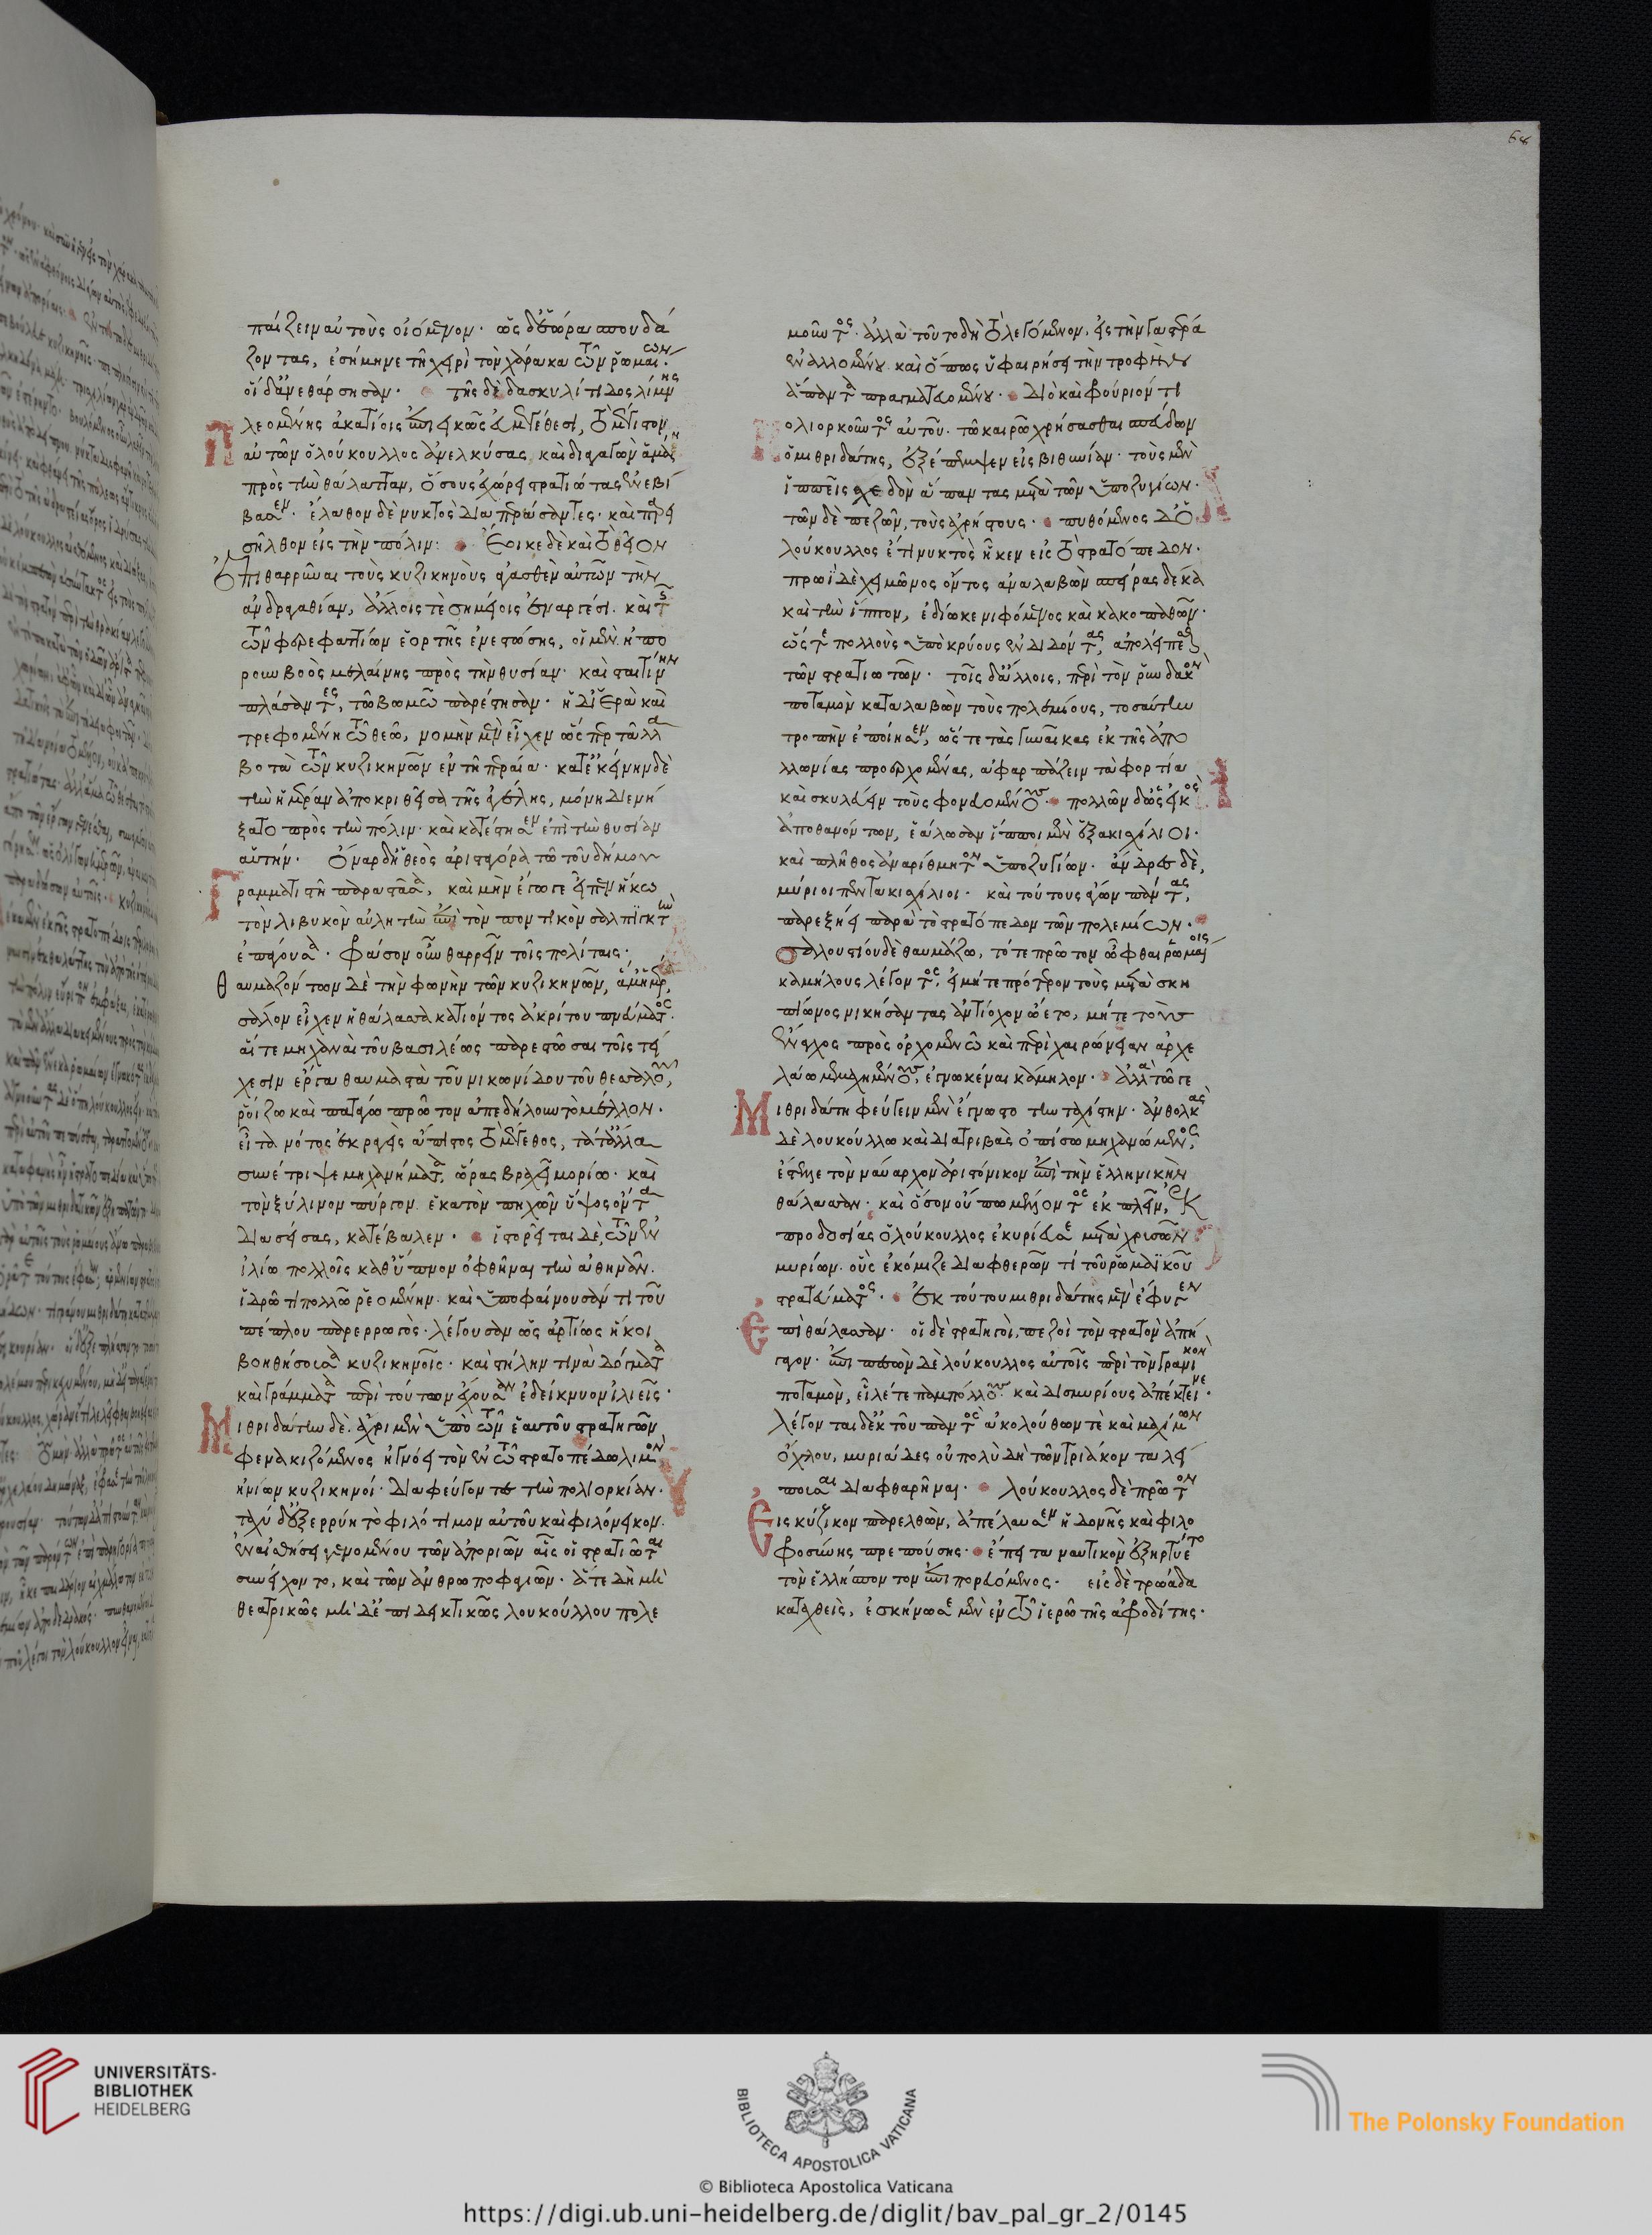 παίζειν αὐτοὺς οἰόμενον· ὡς δ' ἑώρα σπουδά
ζοντας, ἐσήμηνε τῇ χειρὶ τὸν χάρακα τῶν ῥωμαίων
οἱ δ' ἀνεθάρσησαν· τῆς δὲ δασκυλίτιδος λίμνης
Πλεομένης ἀκατίοις ἐπιεικῶς εὐμεγέθεσι, τὸ μέγιστον
αὐτῶν ὁ λούκουλλος ἀνελκύσας καὶ διαγαγὼν ἁμάξῃ
πρὸς τὴν θάλατταν, ὅσους ἐχώρει στρατιώτας ἐνεβί
βασεν· ἔλαθον δὲ νυκτὸς διαπεράσαντες· καὶ παρει
σῆλθον εἰς τὴν πόλιν: Ἔοικε δὲ καὶ τὸ θεῖον
ἐπιθαρρῦναι τοὺς κυζικηνοὺς ἀγασθὲν αὐτῶν τὴν
ἀνδραγαθίαν, ἄλλοις τὲ σημείοις ἐναργέσι. καὶ τῆς
τῶν φερεφαττίων ἑορτῆς ἐνεστώσης, οἱ μὲν ἠπό
ρουν βοὸς μελαίνης πρὸς τὴν θυσίαν· καὶ σταιτίνην
πλάσαντες, τῷ βωμῷ παρέστησαν· ἡ δ' ἱερὰ καὶ
τρεφομένη τῷ θεῷ, νομὴν μὲν εἶχεν ὥσπερ τἆλλα
βοτὰ τῶν κυζικηνῶν ἐν τῇ περαίᾳ· κατ' ἐκείνην δὲ
τὴν ἡμέραν ἀποκριθεῖσα τῆς ἀγέλης, μόνη διενή
ξατο πρὸς τὴν πόλιν· καὶ κατέστησεν ἐπὶ τὴν θυσίαν
αὑτήν· Ὄναρ δ' ἡ θεὸς ἀρισταγόρᾳ τῷ τοῦ δήμου
Γραμματιστῇ παραστᾶσα, καὶ μὴν ἔγωγε εἶπεν ἥκω
τὸν λιβυκὸν αὐλητὴν ἐπὶ τὸν ποντικὸν σαλπιγκτὴν
ἐπάγουσα· φράσον οὖν θαρρεῖν τοῖς πολίταις·
Θαυμαζόντων δὲ τὴν φωνὴν τῶν κυζικηνῶν, ἅμ' ἡμέρᾳ,
σάλον εἶχεν ἡ θάλασσα κατιόντος ἀκρίτου πνεύματος·
αἵ τε μηχαναὶ τοῦ βασιλέως παρεστῶσαι τοῖς τεί
χεσιν ἔργα θαυμαστὰ τοῦ νικωνίδου τοῦ θεσσαλοῦ,
ῥοίζῳ καὶ πατάγῳ πρῶτον ἀπεδήλουν τὸ μέλλον·
εἶτα νότος ἐκραγεὶς ἄπιστος τὸ μέγεθος, τά τ' ἄλλα
συνέτριψε μηχανήματα, ὥρας βραχεῖ μορίῳ· καὶ
τὸν ξύλινον πύργον ἑκατὸν πηχῶν ὕψος ὄντα
διασείσας, κατέβαλεν· ἱστορεῖται δὲ, τῶν ἐν
ἰλίῳ πολλοῖς καθ' ὕπνον ὀφθῆναι τὴν ἀθηνᾶν.
ἱδρῶτι πολλῷ ῥεομένην· καὶ ὑποφαίνουσάν τι τοῦ
πέπλου παρερρωγός· λέγουσαν ὡς ἀρτίως ἥκοι
βοηθήσασα κυζικηνοῖς· καὶ στήλην τινὰ δόγματα
καὶ γράμματα περὶ τούτων ἔχουσαν ἐδείκνυον ἰλιεῖς·
Μιθριδάτην δὲ. ἄχρι μὲν ὑπὸ τῶν ἑαυτοῦ στρατηγῶν
φενακιζόμενος ἠγνόει τὸν ἐν τῷ στρατοπέδῳ λιμὸν
ἠνίων κυζικηνοί· διαφεύγοντες τὴν πολιορκίαν·
ταχὺ δ' ἐξερρύη τὸ φιλότιμον αὐτοῦ καὶ φιλόνεικον·
ἐν αἰσθήσει γενομένου τῶν ἀποριῶν αἷς οἱ στρατιῶται
συνείχοντο, καὶ τῶν ἀνθρωποφαγιῶν· ἅτε δὴ μὴ
θεατρικῶς μὴ δ' ἐπιδεικτικῶς λουκούλλου πολε
μοῦντος· ἀλλὰ τοῦτο δὴ τὸ λεγόμενον, εἰς τὴν γαστέρα
ἐναλλομένου καὶ ὅπως ὑφαιρήσει τὴν τροφὴν
ἅπαντα πραγματευομένου· διὸ καὶ φρούριόν τι
Πολιορκοῦντος αὐτοῦ· τῷ καιρῷ χρήσασθαι σπεύδων
ὁ μιθριδάτης, ἐξέπεμψεν εἰς βιθυνίαν· τοὺς μὲν
ἱππεῖς σχεδὸν ἅπαντας μετὰ τῶν ὑποζυγίων·
τῶν δὲ πεζῶν, τοὺς ἀχρήστους· πυθόμενος δὲ ὁ
λούκουλλος ἔτι νυκτὸς ἧκεν εἰς τὸ στρατόπεδον·
πρωῒ δὲ χειμῶνος ὄντος ἀναλαβὼν σπείρας δέκα
καὶ τὴν ἵππον, ἐδίωκε νιφόμενος καὶ κακοπαθῶν·
ὥστε πολλοὺς ὑπὸ κρύους ἐνδιδόντας, ἀπολείπεσθαι
τῶν στρατιωτῶν· τοῖς δ' ἄλλοις, περὶ τὸν ῥυνδακὸν
ποταμὸν καταλαβὼν τοὺς πολεμίους, τοσαύτην
τροπὴν ἐποίησεν, ὥς τε τὰς γυναῖκας ἐκ τῆς ἀπο
λλωνίας προερχομένας, ἀφαρπάζειν τὰ φορτία
καὶ σκυλεύειν τοὺς φονευομένους· πολλῶν δ' ὡς εἰκὸς
ἀποθανόντων, ἑάλωσαν ἵπποι μὲν ἑξακισχίλιοι·
καὶ πλῆθος ἀναρίθμητον ὑποζυγίων· ἄνδρες δὲ,
μύριοι πεντακισχίλιοι· καὶ τούτους ἄγων πάντας,
παρεξήει παρὰ τὸ στρατόπεδον τῶν πολεμίων·
Σαλλουστίου δὲ θαυμάζω, τότε πρῶτον ὦφθαι ῥωμαίοις
καμήλους λέγοντος, εἰ μήτε πρότερον τοὺς μετὰ σκη
πίωνος νικήσαντας ἀντίοχον ᾤετο, μήτε τοὺς
ἔναγχος πρὸς ὀρχομενῷ καὶ περὶ χαιρώνειαν ἀρχε
λάῳ μεμαχημένους, ἐγνωκέναι κάμηλον· ἀλλὰ τῷ γε
Μιθριδάτῃ φεύγειν μὲν ἔγνωστο τὴν ταχίστην· ἀνθολκὰς
δὲ λουκούλλῳ καὶ διατριβὰς ὀπίσω μηχανώμενος,
ἔστειλε τὸν ναύαρχον ἀριστόνικον ἐπὶ τὴν ἑλληνικὴν
θάλασσαν· καὶ ὅσον οὔπω μέλλοντος ἐκπλεῖν, ἐκ
προδοσίας ὁ λούκουλλος ἐκυρίευσε μετὰ χρυσῶν
μυρίων· οὓς ἐκόμιζε διαφθερῶν τι τοῦ ῥωμαϊκοῦ
στρατεύματος· Ἐκ τούτου μιθριδάτης μὲν ἔφυγεν
Ἐπὶ θάλασσαν· οἱ δὲ στρατηγοὶ, πεζοὶ τὸν στρατὸν ἀπῆ
γον· ἐπιπεσὼν δὲ λούκουλλος αὐτοῖς περὶ τὸν γρανικὸν
ποταμὸν, εἷλέ τε παμπόλλους καὶ δισμυρίους ἀπέκτεινε·
λέγονται δ' ἐκ τοῦ παντὸς ἀκολούθων τὲ καὶ μαχίμων
ὄχλου, μυριάδες οὐ πολὺ δὴ τῶν τριάκοντα λεί
πουσαι διαφθαρῆναι· λούκουλλος δὲ πρῶτον
Εἰς κύζικον παρελθὼν, ἀπέλαυσεν ἡδονῆς καὶ φιλο
φροσύνης πρεπούσης· ἔπειτα ναυτικὸν ἐξηρτύετο
τὸν ἑλλήσποντον ἐπιπορευόμενος· εἰς δὲ τρωάδα
καταχθεὶς, ἐσκήνωσε μὲν ἐν τῷ ἱερῷ τῆς ἀφροδίτης·
68
UNIVERSITÄTS-
BIBLIOTHEK
HEIDELBERG
BIBLIOTECA APOSTOLICA VATICANA
The Polonsky Foundation
© Biblioteca Apostolica Vaticana
https://digi.ub.uni-heidelberg.de/diglit/bav_pal_gr_2/0145